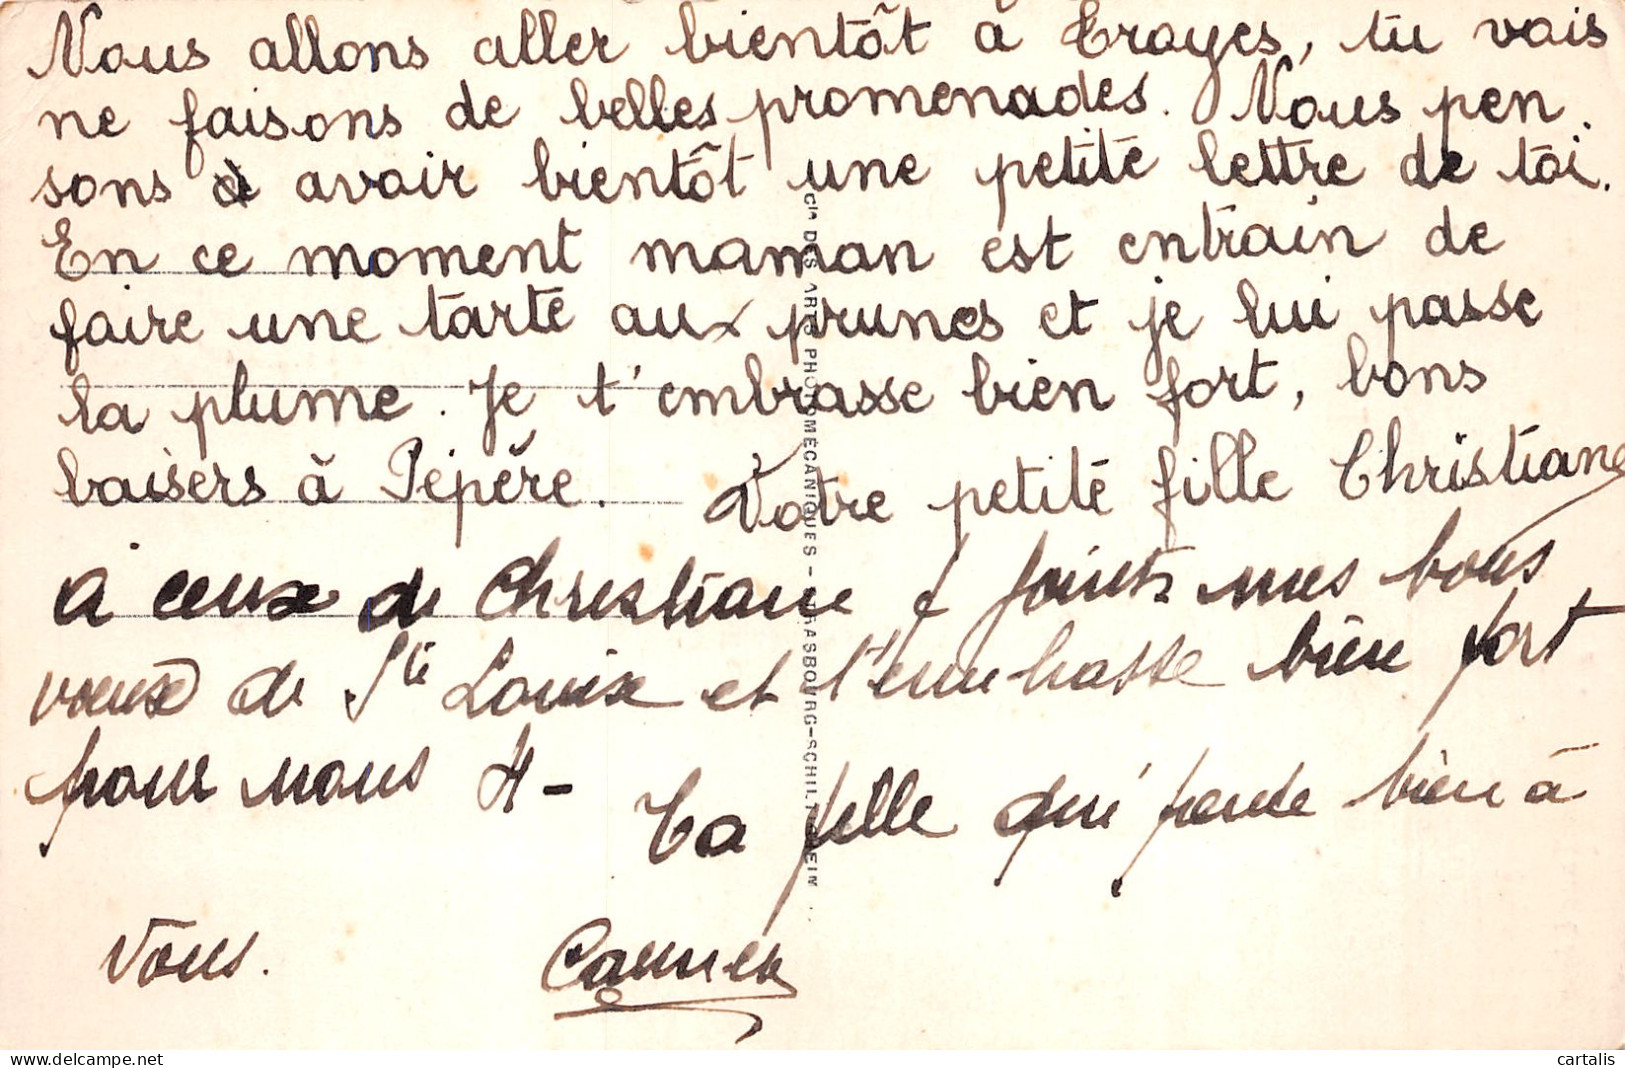 Nous allons aller bientôt à Troyes, tu vois
ne faisons de belles promenades. Nous pen
sons à avoir bientôt une petite lettre de toi.
En ce moment maman est entrain de
faire une tarte aux prunes et je lui passe
la plume. Je t'embrasse bien fort, bons
baisers à Pépère. Votre petite fille Christiane
A ceux de Christiane je joints mes bons
vœux de Ste Louise et t'embrasse bien fort
pour nous 4 -
Ta fille qui pense bien à
Vous.
Carmen
Cie DES ARTS PHOTOMÉCANIQUES - STRASBOURG-SCHILTIGHEIM
cartalis
delcampe.net